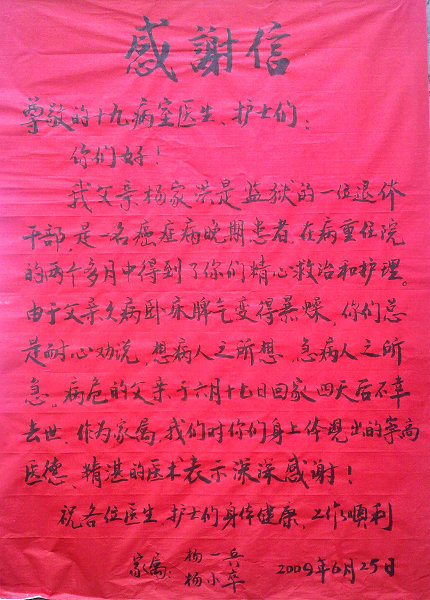 感謝信
尊敬的十九病室医生、护士们:
你们好!
我父亲杨家洪是监狱的一位退休
干部,是一名癌症病晚期患者,在病重住院
的两个多月中得到了你们精心救治和护理。
由于父亲久病卧床脾气变得暴燥,你们总
是耐心劝说,想病人之所想,急病人之所
急。病危的父亲于六月十七日回家四天后不幸
去世。作为家属,我们对你们身上体现出的崇高
医德、精湛的医术表示深深感谢!
祝各位医生、护士们身体健康,工作顺利
家属: 杨一兵
杨小
2009年6月25日